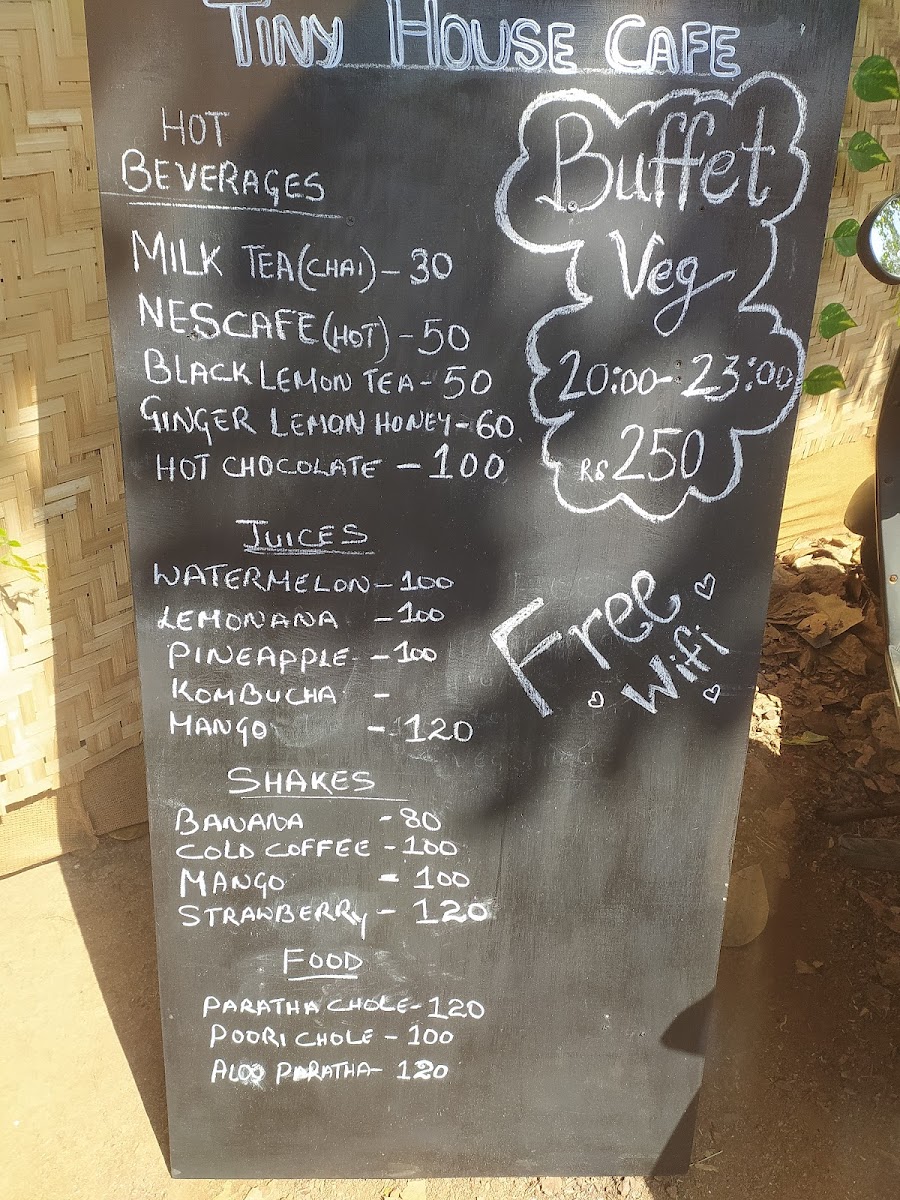 TINY HOUSE CAFE
HOT
BEVERAGES
MILK TEA(CHAI) - 30
NESCAFE(HOT) - 50
BLACK LEMON TEA - 50
GINGER LEMON HONEY - 60
HOT CHOCOLATE - 100
JUICES
WATERMELON - 100
LEMONANA - 100
PINEAPPLE - 100
KOMBUCHA -
MANGO - 120
SHAKES
BANANA - 80
COLD COFFEE - 100
MANGO - 100
STRAWBERRY - 120
FOOD
PARATHA CHOLE - 120
POORI CHOLE - 100
ALOO PARATHA - 120
Buffet
Veg
20:00 - 23:00
RS 250
Free
Wifi